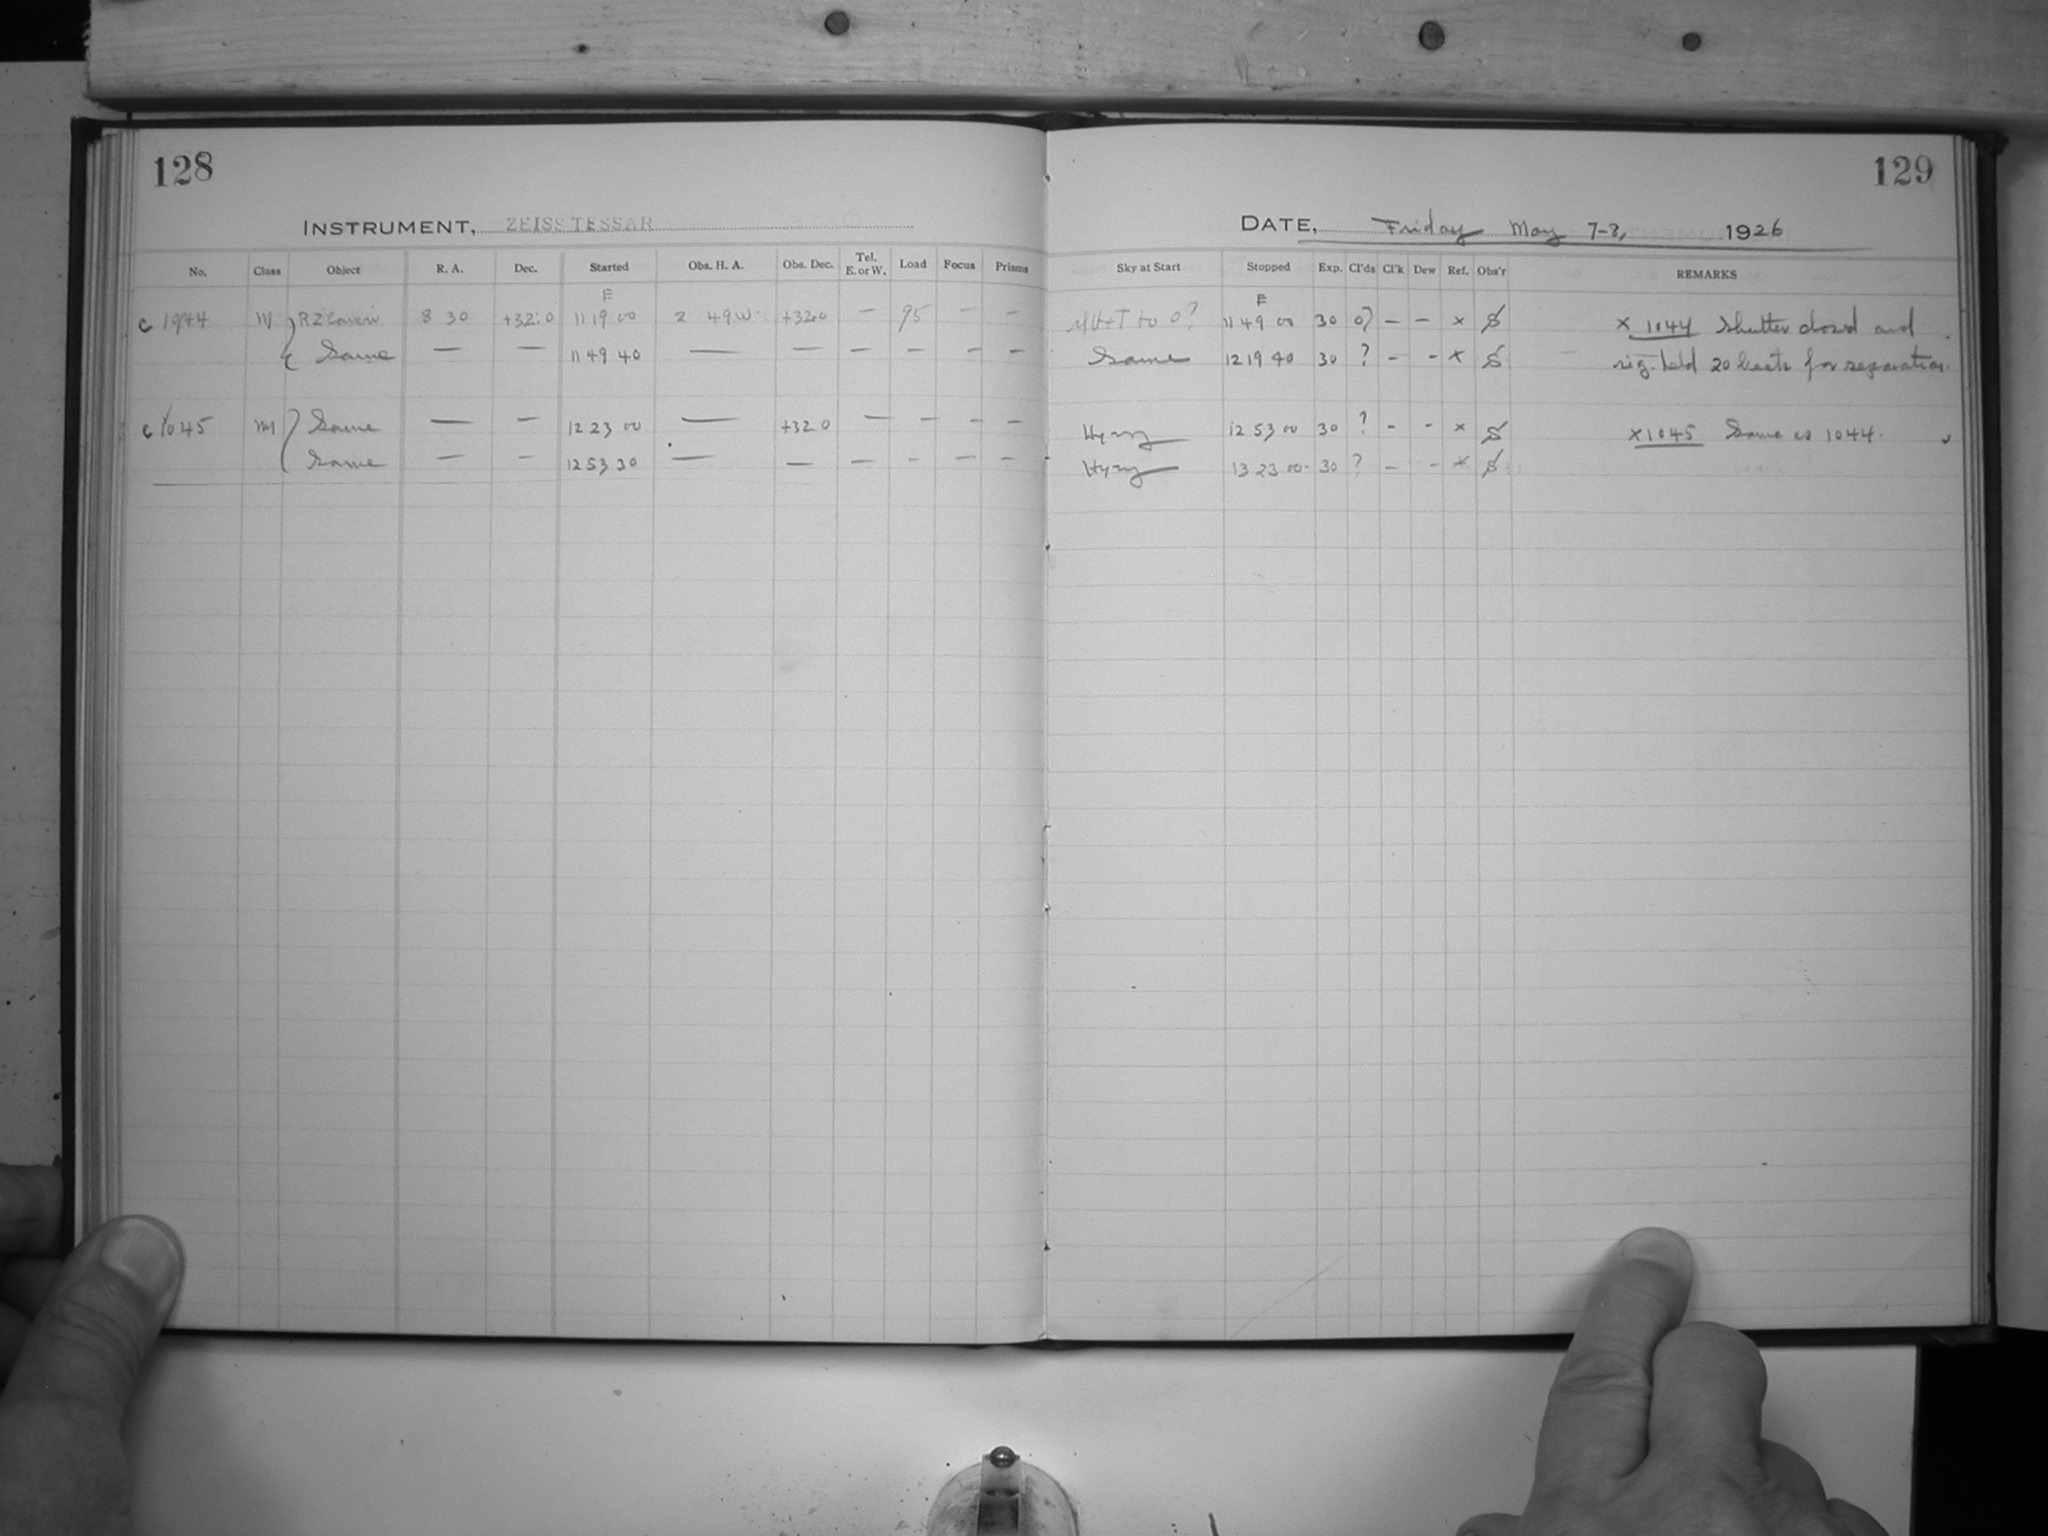 128
INSTRUMENT, ZEISS TESSAR
No. Class Object R. A. Dec. Started Obs. H. A. Obs. Dec. Tel. E. or W. Load Focus Prisms
E
c 1044 M R Z Cancri 8 30 +32.0 11 19 00 2 49 W. +32.0 — 95 — —
Same — — 11 49 40 — — — — — —
c 1045 M Same — — 12 23 00 — +32 0 — — — —
Same — — 12 53 30 — — — — — —
129
DATE, Friday May 7-8, 1926
Sky at Start Stopped Exp. Cl'ds Cl'k Dew Ref. Obs'r REMARKS
E
to 0? 11 49 00 30 0? — — x S x 1044 Shutter closed and
Same 12 19 40 30 ? - - x S rig. held 20 beats for separation.
Hyzy 12 53 00 30 ? - - x S x 1045 Same as 1044.
Hyzy 13 23 00 30 ? - - x S